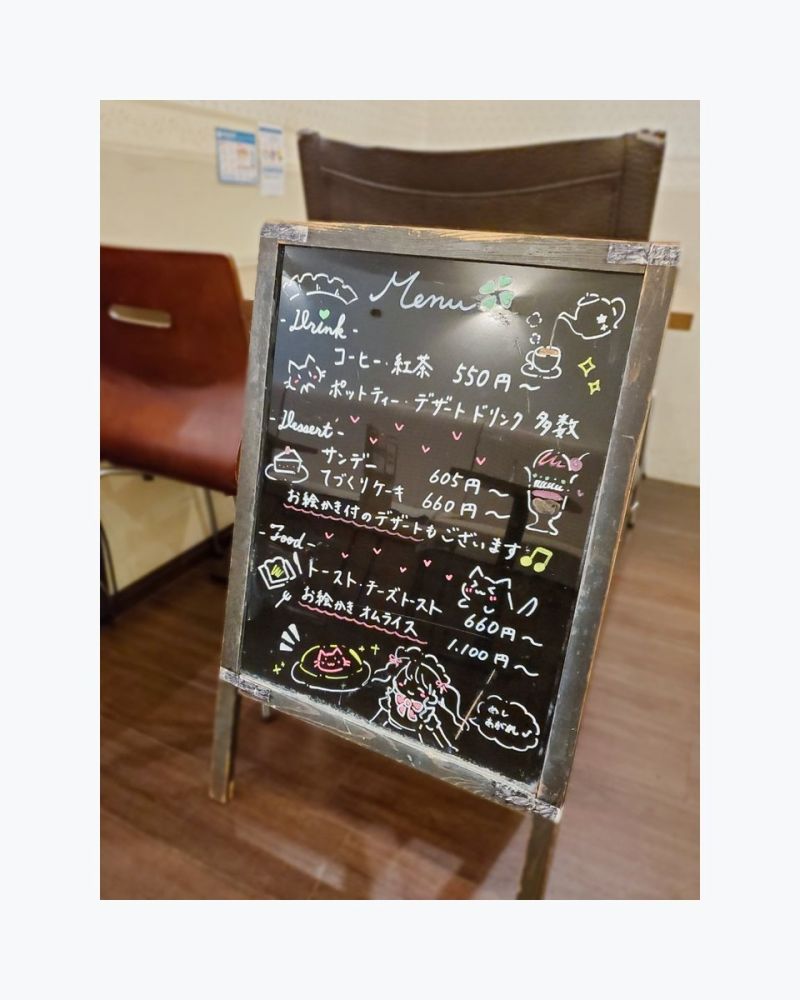 Menu
- Drink -
コーヒー・紅茶 550円～
ポットティー・デザートドリンク 多数
- Dessert -
サンデー 605円～
てづくりケーキ 660円～
お絵かき付のデザートもございます♫
- Food -
トースト・チーズトースト 660円～
お絵かきオムライス 1.100円～
めし
あがれ♪